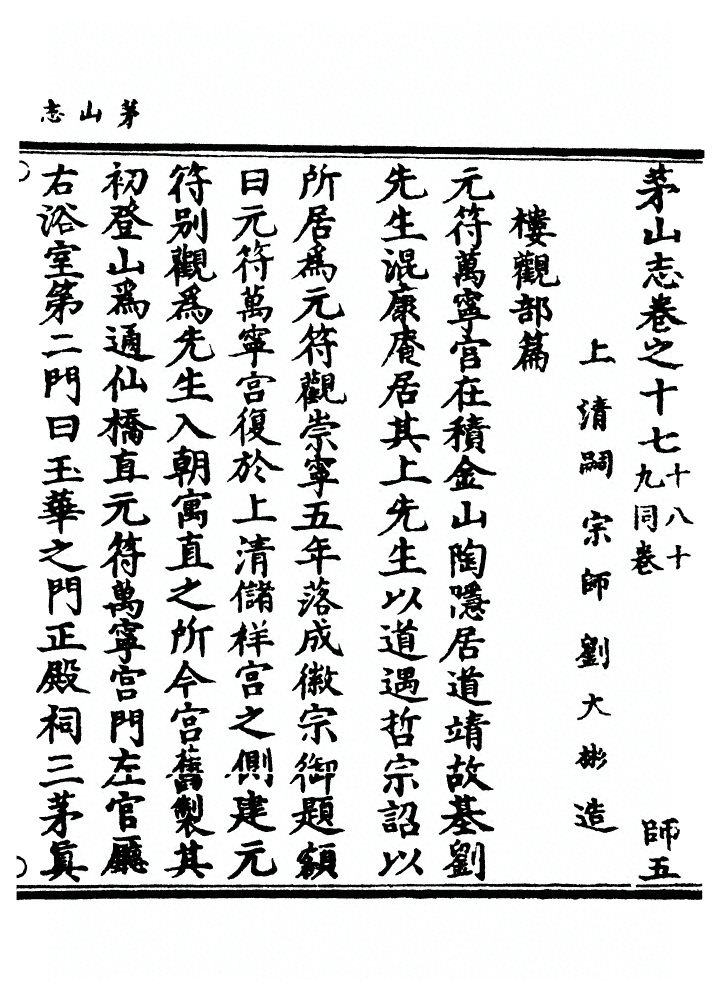 茅山志
茅山志卷之十七十八十九同卷 師五
上清嗣宗師劉大彬造
樓觀部篇
元符萬寧宮在積金山陶隱居道靖故基劉
先生混康庵居其上先生以道遇哲宗詔以
所居為元符觀崇寧五年落成徽宗御題額
曰元符萬寧宮復於上清儲祥宮之側建元
符別觀為先生入朝寓直之所今宮舊製其
初登山為通仙橋直元符萬寧宮門左官廳
右浴室第二門曰玉華之門正殿祠三茅眞